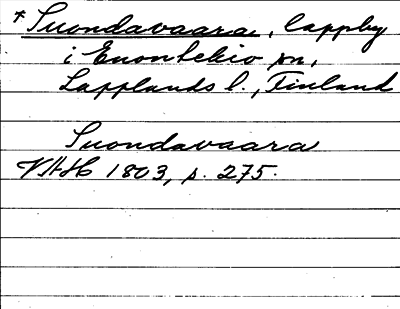 * Suondavaara, lappby
i Enontekio sn,
Lapplands l., Finland
Suondavaara
VAH 1803, s. 275.